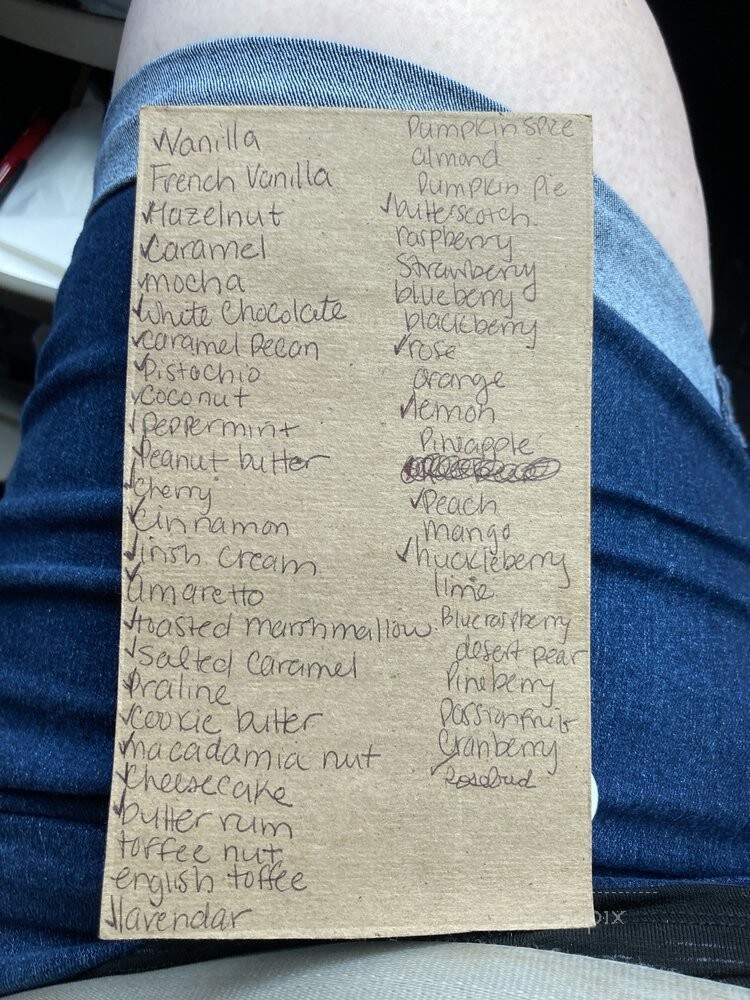 Vanilla
French Vanilla
Hazelnut
Caramel
mocha
White Chocolate
caramel pecan
Pistachio
coconut
peppermint
Peanut butter
Cherry
Cinnamon
irish cream
amaretto
toasted marshmallow
Salted Caramel
Praline
cookie butter
macadamia nut
cheesecake
butter rum
toffee nut
english toffee
lavendar
Pumpkin Spice
almond
Pumpkin Pie
butterscotch
raspberry
Strawberry
blueberry
blackberry
rose
orange
lemon
Pineapple
Peach
mango
huckleberry
lime
Blue raspberry
desert pear
Pineberry
Passionfruit
Cranberry
Rosebud